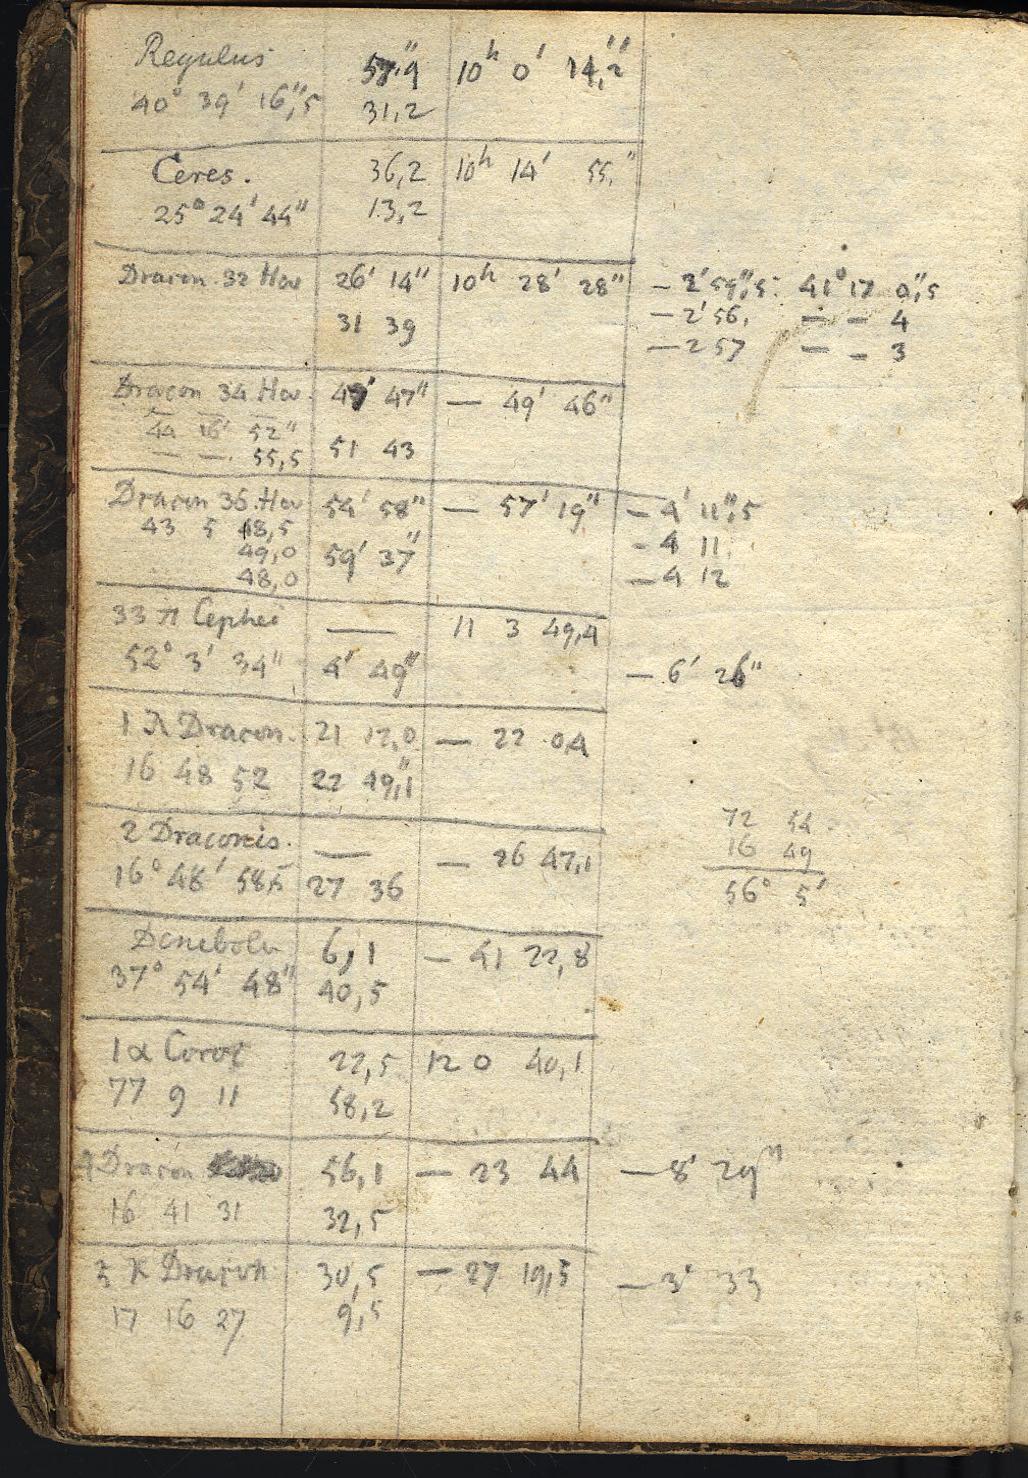 Regulus 57,9" 10h 0' 14,2"
40° 39' 16",5 31,2
Ceres. 36,2 10h 14' 55,"
25° 24' 44" 13,2
Dracon 32 Hev 26' 14" 10h 28' 28" — 2' 59",5. 41° 17 0",5
31 39 — 2' 56, — — 4
— 2 57 — — 3
Dracon 34 Hev. 47" — 49' 46"
44 16' 52"
— — 55,5 51 43
Dracon 35 Hev 54' 58" — 57' 19" — 4' 11",5
43 5 48,5 — 4 11.
49,0 59' 37"
48,0 — 4 12
33 π Cephei — 11 3 49,4
52° 3' 34" 4' 49" — 6' 26"
1 λ Dracon. 21 12,0 — 22 0,4
16 48 52 22 49",1
72 54
2 Draconis. — — 26 47,1 16 49
16° 48' 58,5 27 36 56° 5'
Denebola 6,1 — 41 22,8
37° 54' 48" 40,5
1 α Corvi 22,5 12 0 40,1
77 9 11 58,2
4 Dracon 56,1 — 23 44 — 8' 29"
16 41 31 32,5
5 κ Dracon 30,5 — 27 19,5 — 3' 33
17 16 27 9,5